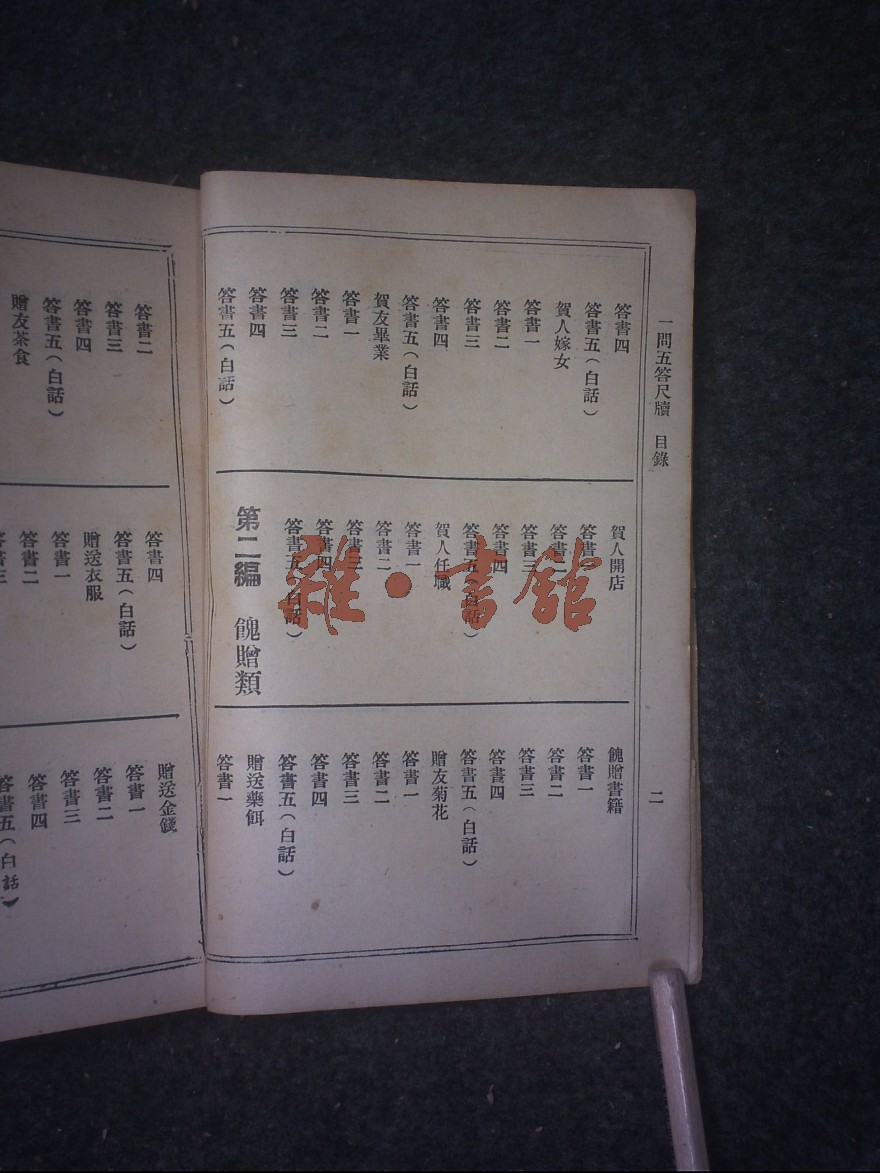 一問五答尺牘 目錄
二
答書四
答書五(白話)
賀人嫁女
答書一
答書二
答書三
答書四
答書五(白話)
賀友畢業
答書一
答書二
答書三
答書四
答書五(白話)
賀人開店
答書一
答書二
答書三
答書四
答書五(白話)
賀人任職
答書一
答書二
答書三
答書四
答書五(白話)
第二編 餽贈類
餽贈書籍
答書一
答書二
答書三
答書四
答書五(白話)
贈友菊花
答書一
答書二
答書三
答書四
答書五(白話)
贈送藥餌
答書一
答書二
答書三
答書四
答書五(白話)
贈友茶食
答書四
答書五(白話)
贈送衣服
答書一
答書二
答書三
贈送金錢
答書一
答書二
答書三
答書四
答書五(白話)
雜·書館